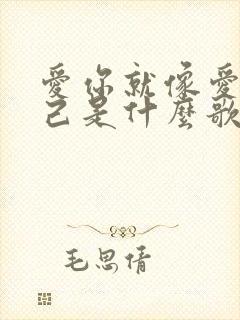 愛你就像愛
己是什麼歌
毛思倩